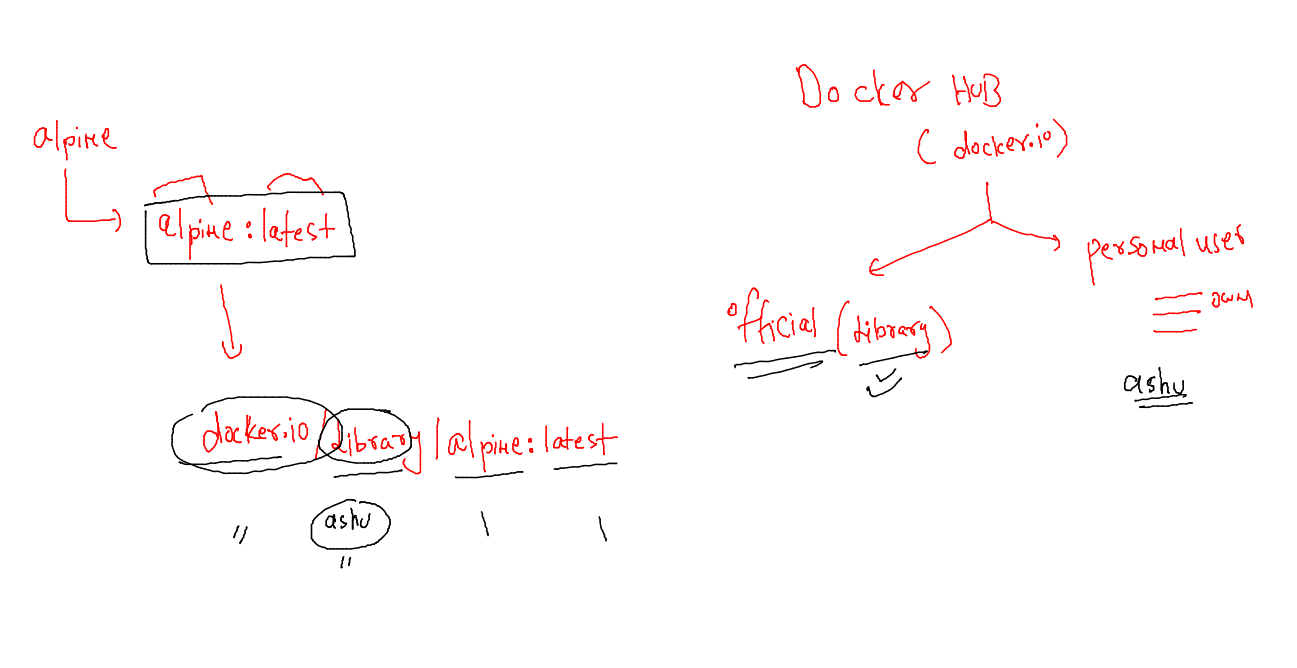 alpine
alpine:latest
docker.io/library/alpine:latest
ashu
Docker HUB
(docker.io)
official (library)
personal user
own
ashu